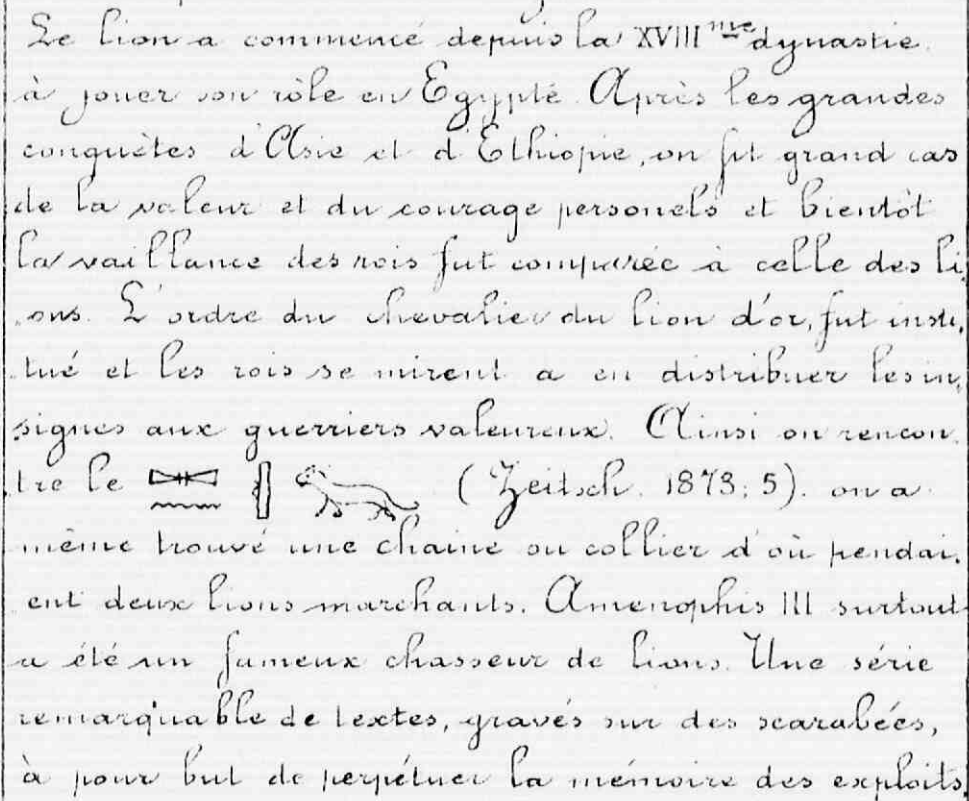 Le lion a commencé depuis la XVIII me dynastie.
à jouer son rôle en Egypte. Après les grandes
conquètes d'Asie et d'Ethiopie, on fit grand cas
de la valeur et du courage personels et bientôt
la vaillance des rois fut comparée à celle des li
ons. L'ordre du chevalier du lion d'or, fut insti,
tué et les rois se mirent a en distribuer les in,
signes aux guerriers valeureux. Ainsi on rencon,
tre le (Zeitsch. 1873: 5). on a
même trouvé une chaine ou collier d'où pendai,
ent deux lions marchants. Amenophis III surtout
a été un fameux chasseur de lions. Une série
remarquable de textes, gravés sur des scarabées,
à pour but de perpétuer la mémoire des exploits,